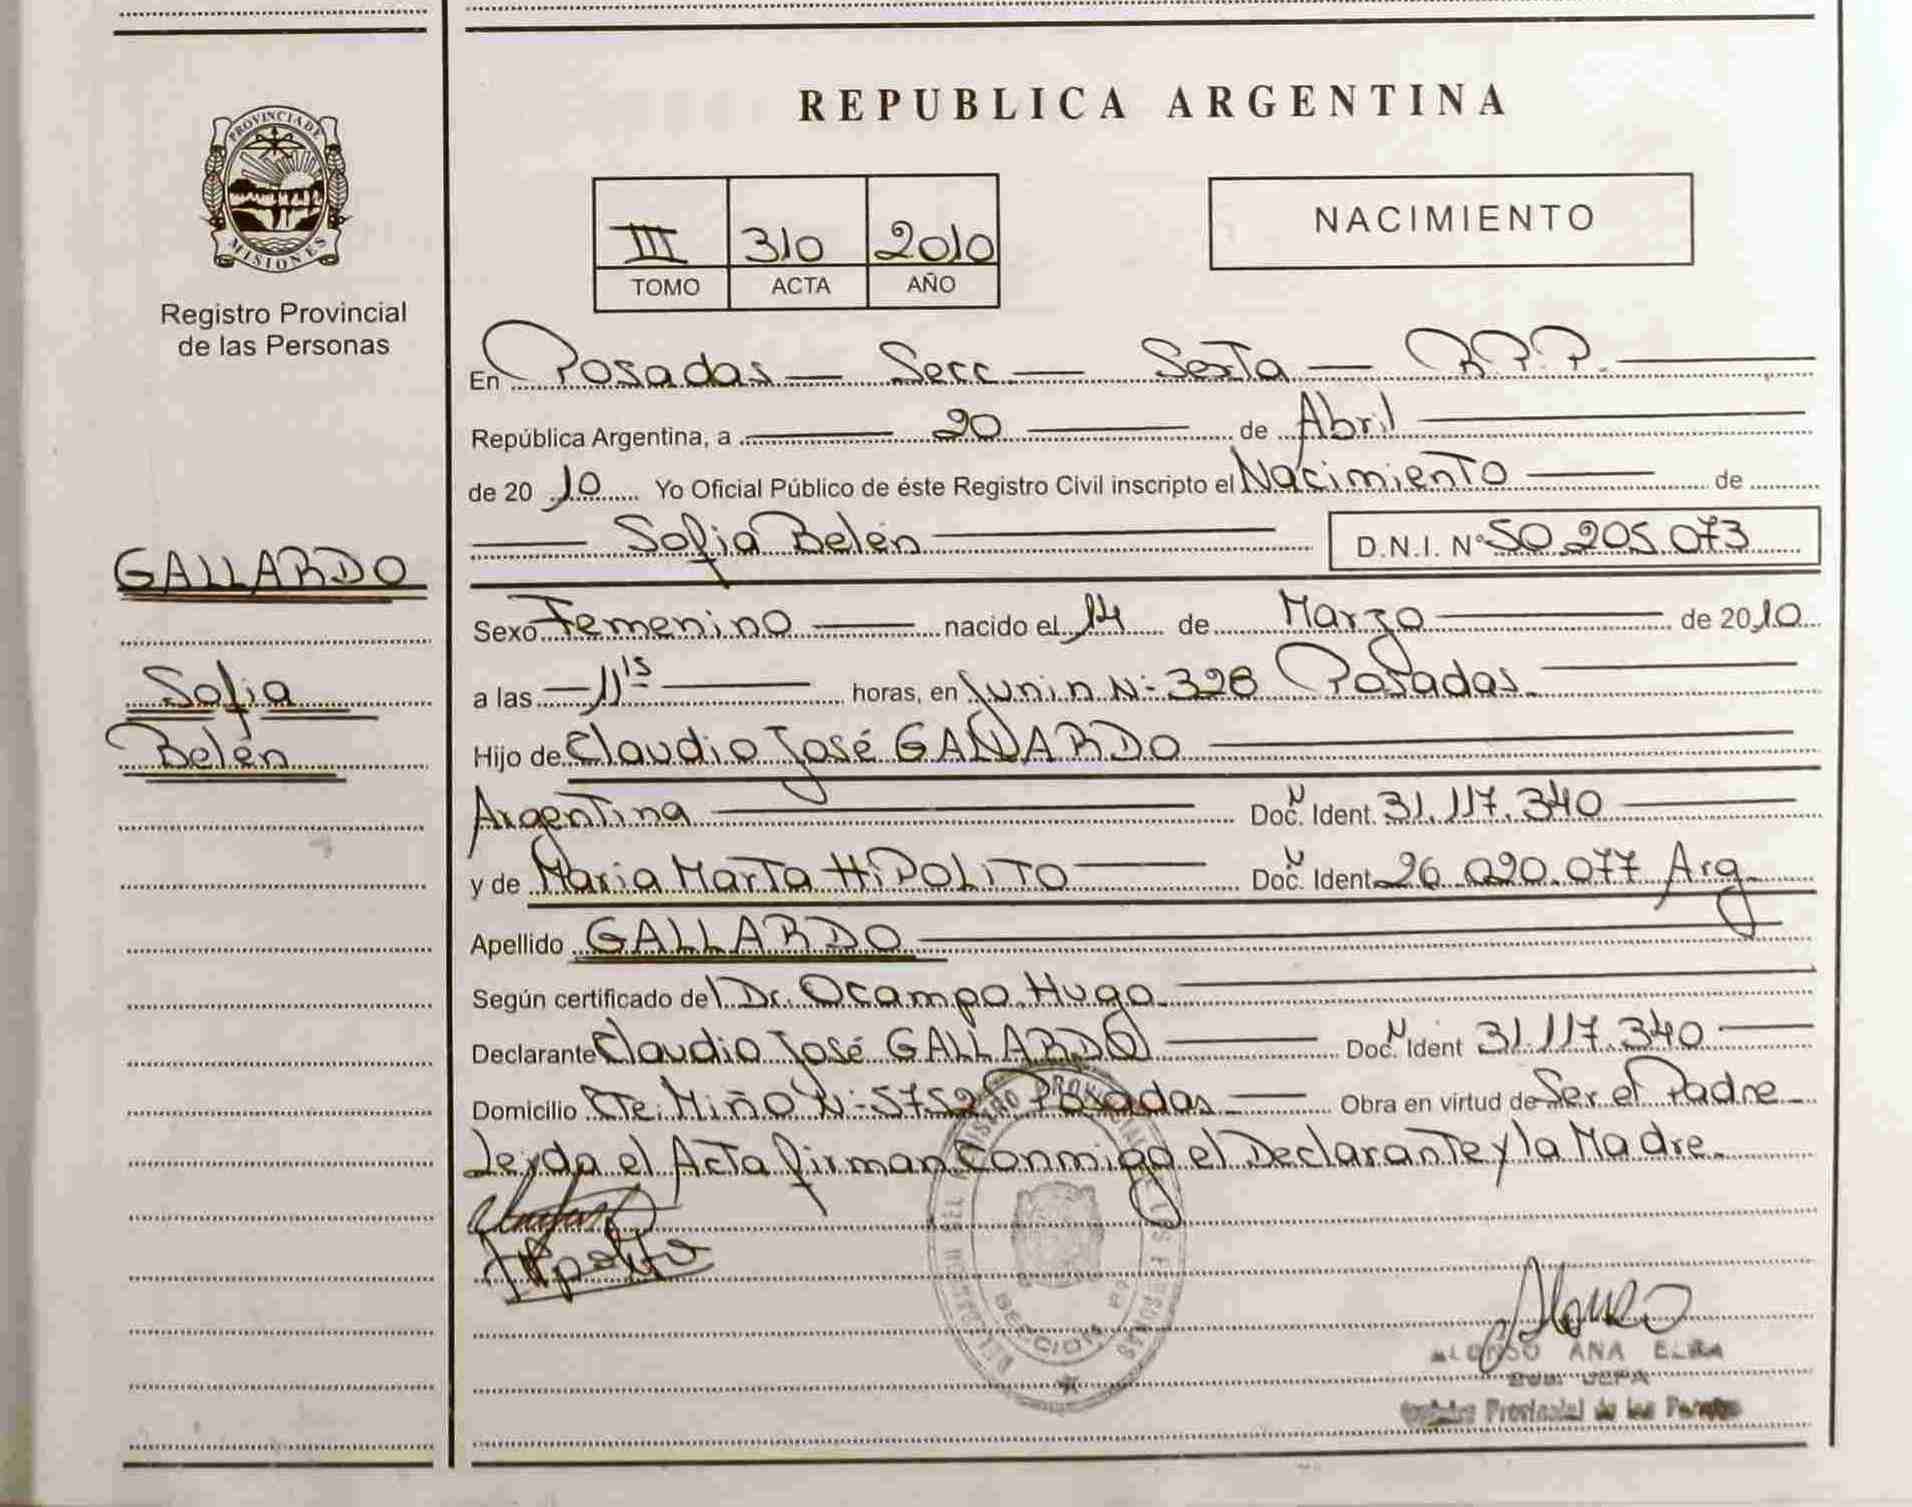 REPUBLICA ARGENTINA
PROVINCIA DE
MISIONES
Registro Provincial
de las Personas
III 310 2010
TOMO ACTA AÑO
NACIMIENTO
En Posadas — Secc — Sexta — R.P.P.
República Argentina, a 20 de Abril
de 2010 Yo Oficial Público de éste Registro Civil inscripto el Nacimiento de
Sofia Belén D.N.I. Nº 50.205.073
GALLARDO
Sofia
Belén
Sexo Femenino nacido el 14 de Marzo de 2010
a las 11 15 horas, en Junin Nº 328 Posadas.
Hijo de Claudio José GALLARDO
Argentina Doc. N Ident. 31.117.340
y de Maria Marta HIPOLITO Doc. N Ident. 26.020.077 Arg.
Apellido GALLARDO
Según certificado del Dr. Ocampo Hugo.
Declarante Claudio José GALLARDO Doc. N Ident 31.117.340
Domicilio Cte. Miño Nº 5752 Posadas Obra en virtud de Ser el Padre
Leyda el Acta firman Conmigo el Declarante y la Madre.
Hipolito
SECCION
ALONSO ANA ELBA
SUB JEFA
Registro Provincial de las Personas